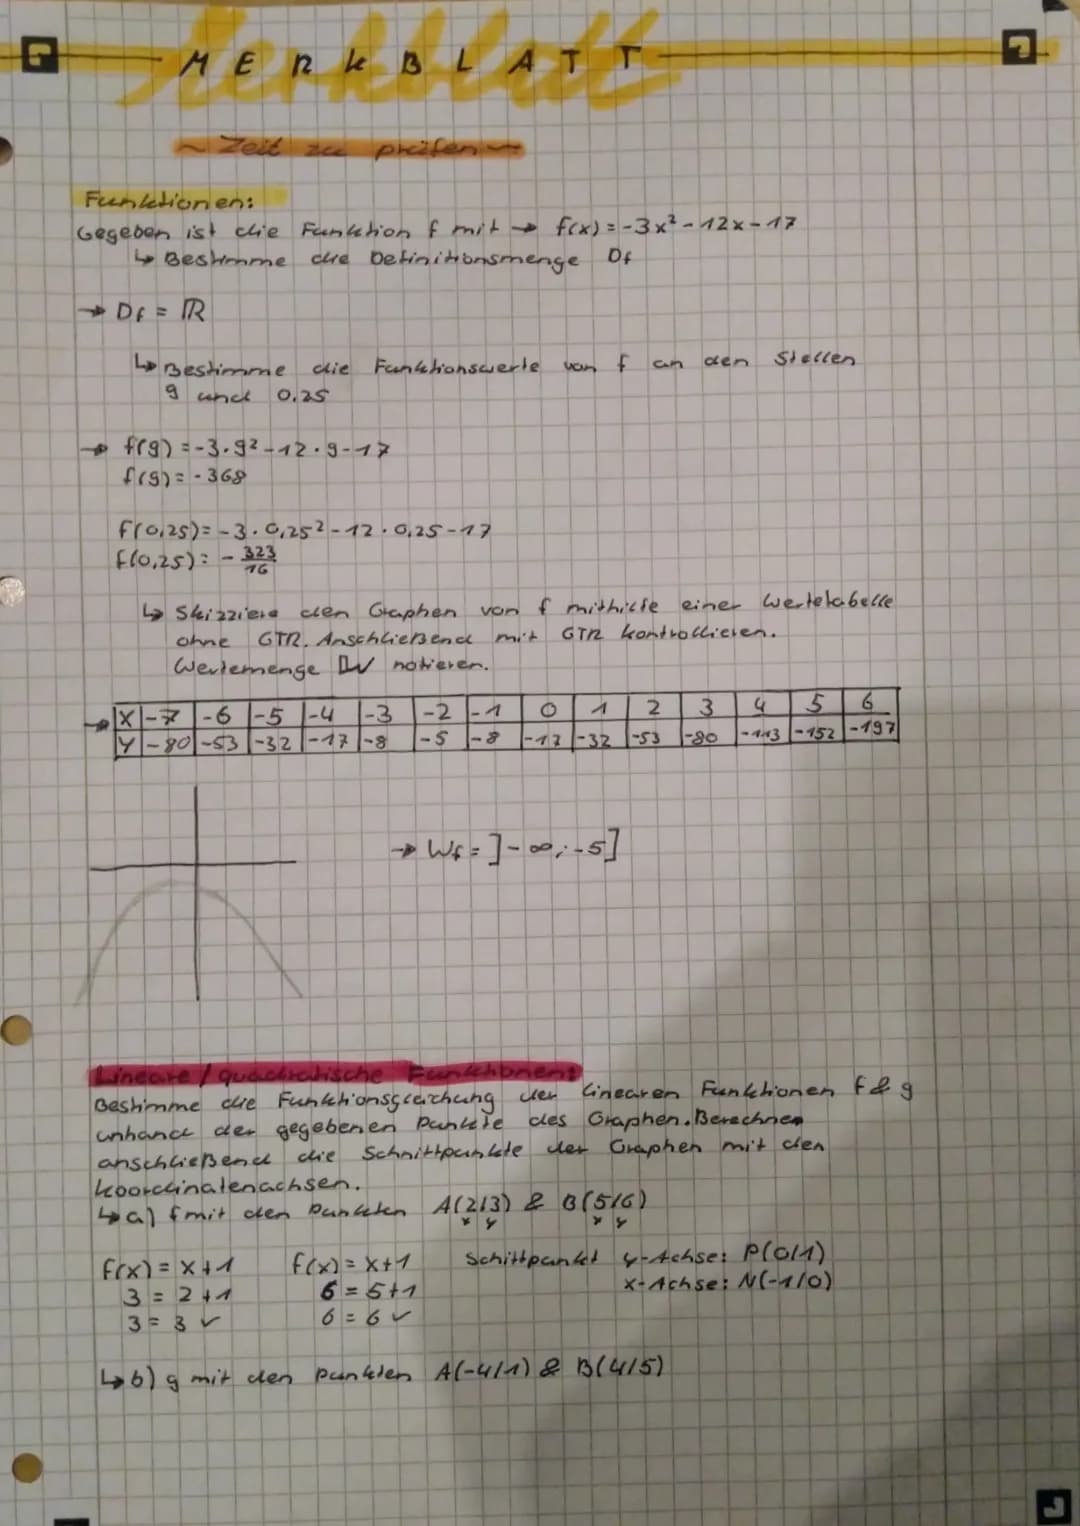 Merkblatt
MERKBLATT
~ Zeit zu prüfen ~
Funktionen:
Gegeben ist die Funktion f mit → f(x) = -3x² - 12x - 17
↳ Bestimme die Definitionsmenge Df
→ Df = ℝ
↳ Bestimme die Funktionswerte von f an den Stellen
9 und 0,25
→ f(9) = -3·9² - 12·9 - 17
f(9) = -368
f(0,25) = -3·0,25² - 12·0,25 - 17
f(0,25) = - 323/16
↳ Skizziere den Graphen von f mithilfe einer Wertetabelle
ohne GTR. Anschließend mit GTR kontrollieren.
Wertemenge W notieren.
→ X -7 -6 -5 -4 -3 -2 -1 0 1 2 3 4 5 6
Y -80 -53 -32 -17 -8 -5 -8 -17 -32 -53 -80 -113 -152 -197
→ Wf = ]-∞; -5]
Lineare / quadratische Funktionen:
Bestimme die Funktionsgleichung der linearen Funktionen f & g
anhand der gegebenen Punkte des Graphen. Berechnen
anschließend die Schnittpunkte der Graphen mit den
Koordinatenachsen.
↳ a) f mit den Punkten A(2/3) & B(5/6)
x y x y
f(x) = x+1 f(x) = x+1 Schittpunkt y-Achse: P(0/1)
3 = 2+1 6 = 5+1 x-Achse: N(-1/0)
3 = 3 ✓ 6 = 6 ✓
↳ b) g mit den Punkten A(-4/1) & B(4/5)